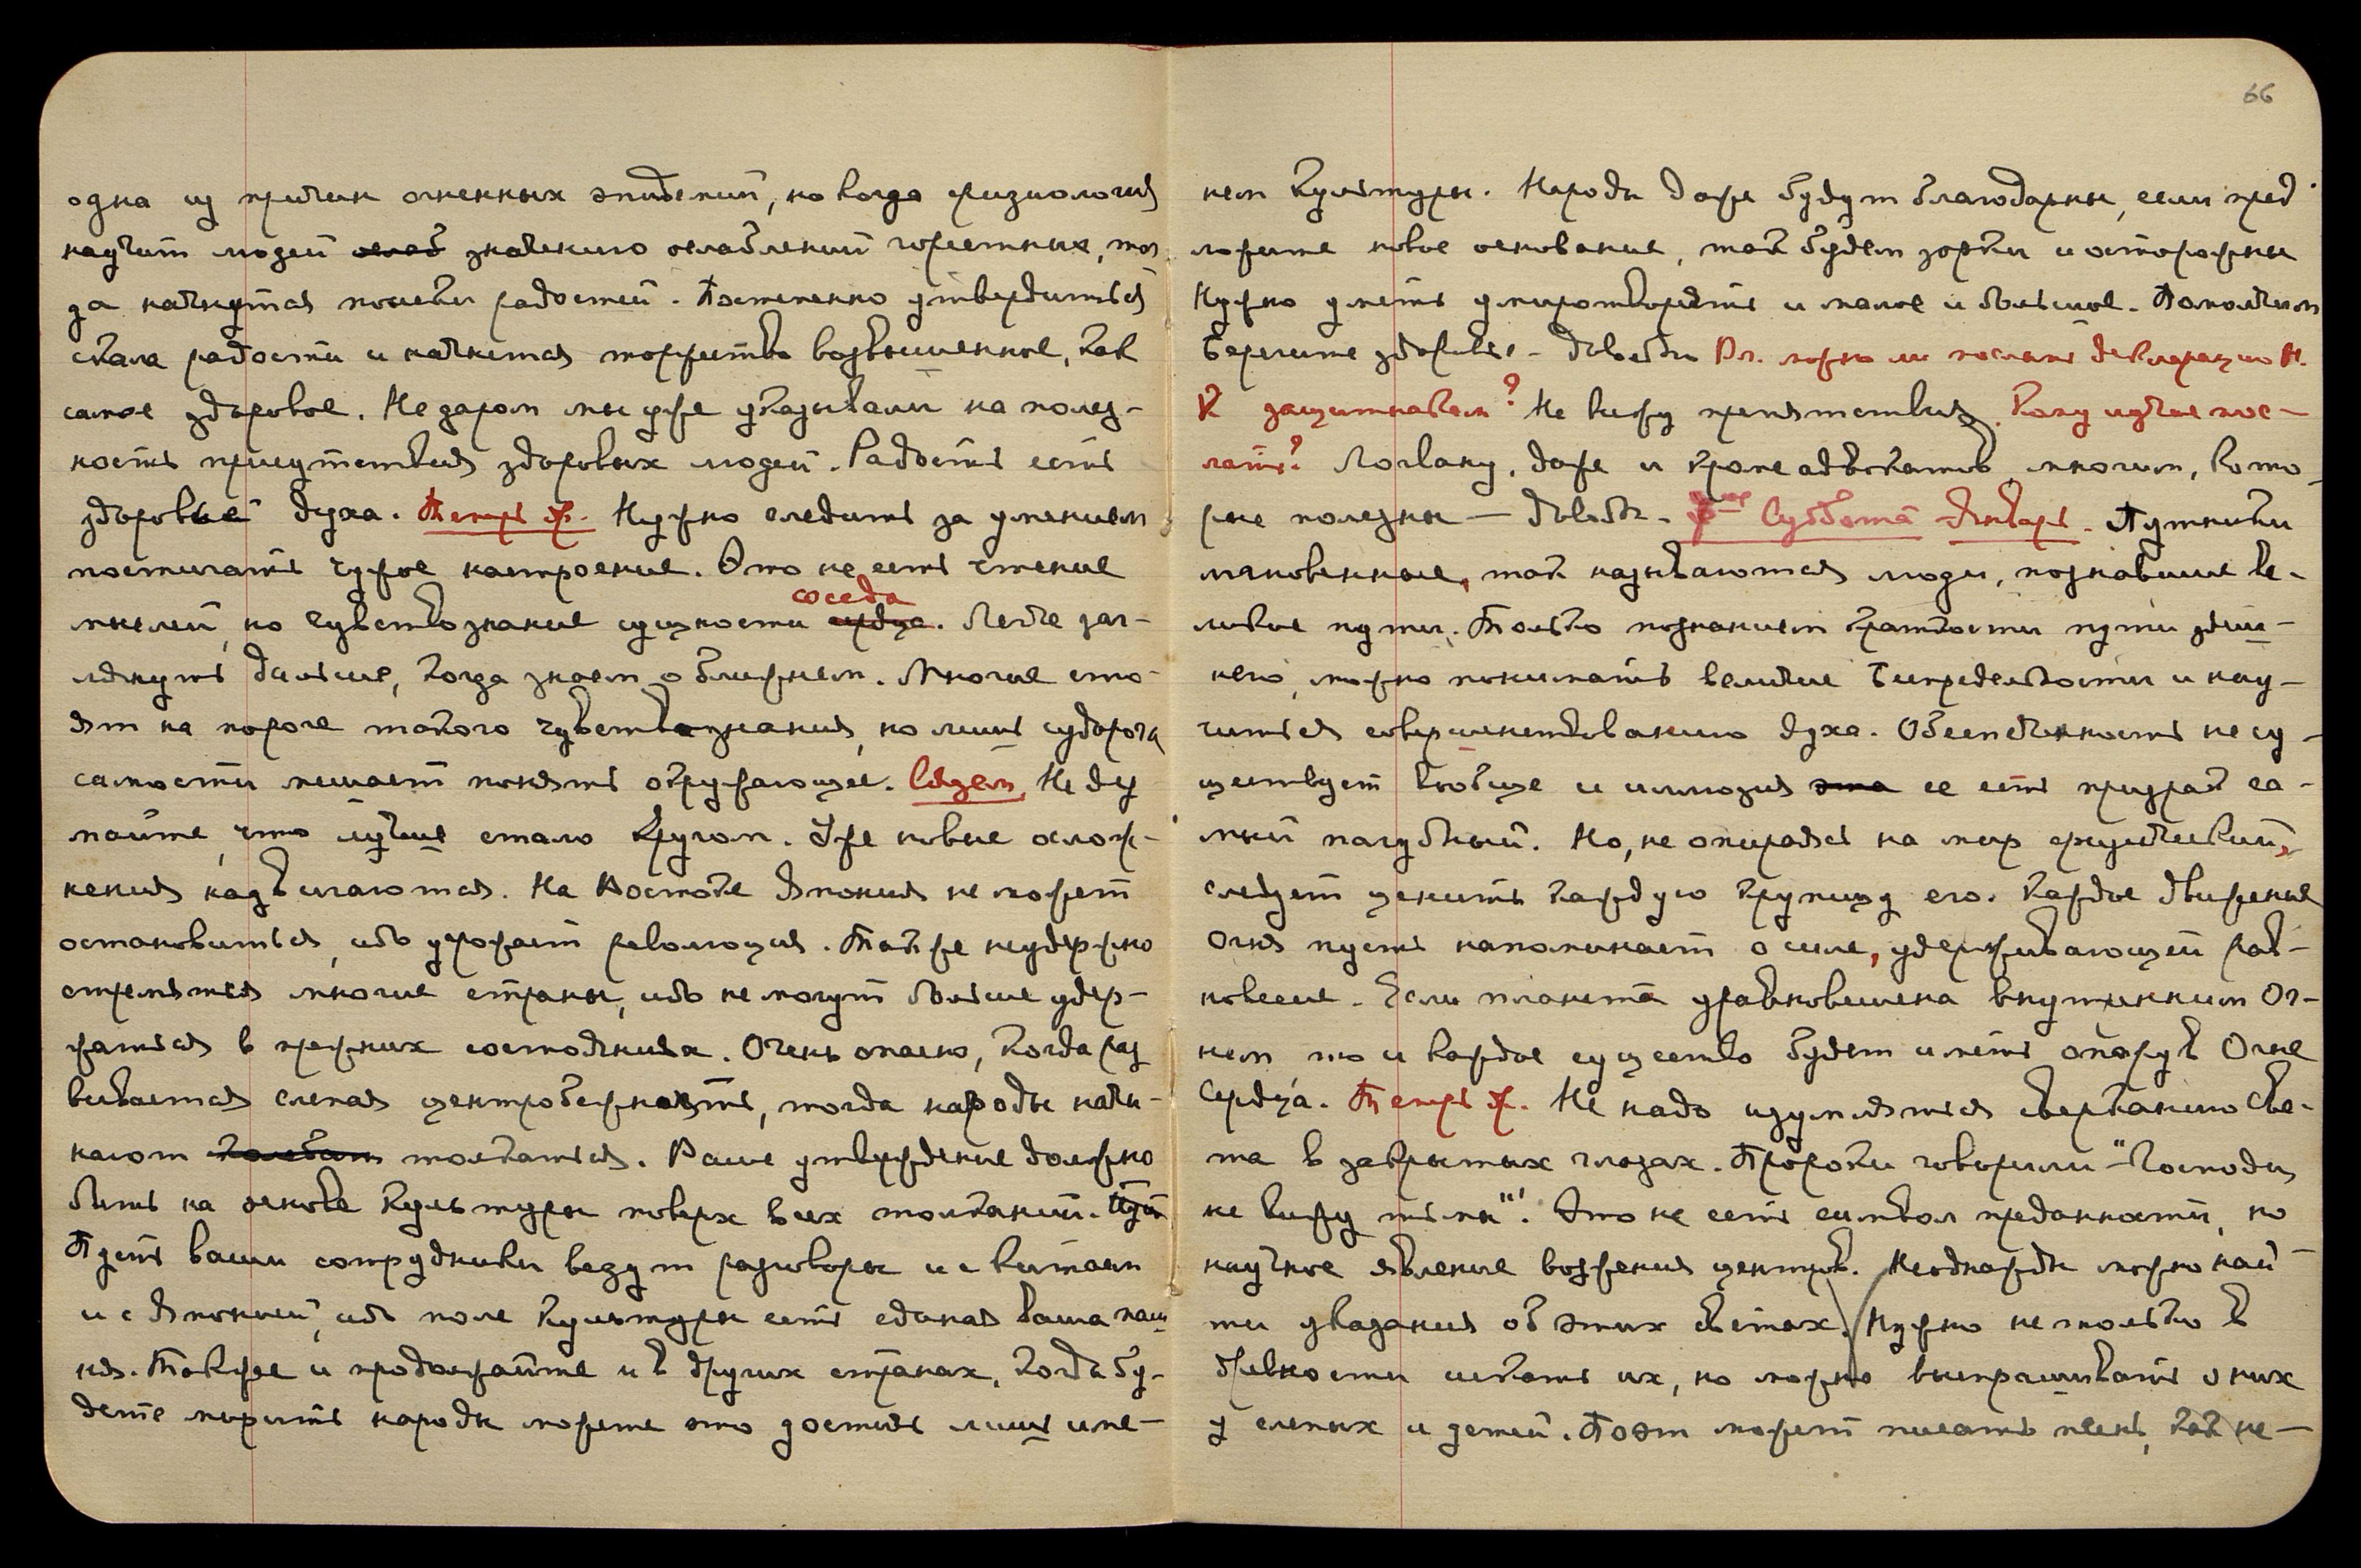 одна из причин огненных эпидемий, но когда физиология
научит людей значению ослаблений горестных, тог
да начнутся посевы радостей. Постепенно утвердиться
скала радости и начнется торжество возвышенное, как
самое здоровое. Недаром мы уже указывали на полез-
ность присутствия здоровых людей. Радость есть
здоровье духа. Теперь ж. Нужно следить за умением
постигать чужое настроение. Это не есть чтение
мыслей, но чувствознание сущности сердца соседа. Легче заг-
лянуть дальше, когда знаем о ближнем. Многие сто-
ят на пороге такого чувствознания, но лишь судорога
самости мешает понять окружающее. Сядем, Не ду
майте, что лучше стало кругом. Уже новые ослож-
нения надвигаются. На Востоке Япония не может
остановиться, ибо угрожает революция. Также неудержно
стремятся многие страны, ибо не могут больше удер-
жаться в прежних состояниях. Очень опасно, когда раз
вивается слепая центробежность, тогда народы начи-
нают толкаться. Ваше утверждение должно
быть на основе культуры поверх всех толканий.
Пусть ваши сотрудники ведут разговоры и с Китаем
и с Японией, ибо поле культуры есть единая ваша паш
ня. Также и продолжайте и в других странах, когда бу-
дете мирить народы можете это достичь лишь име-
66
нем культуры. Народы даже будут благодарны, если пред
ложите новое основание, так будем зорки и осторожны
Нужно уметь умиротворять и малое и большое. Помолчим
Берегите здоровье - довольно Вл. можно ли послать декларацию Н.
К защитникам? Не вижу препятствия. Кому лучше пос-
лать? Логвану, даже и кроме адвокатов, многим, кото
рые полезны — довольно. Суббота Январь. Путники
мгновенные, так называются люди, познавшие ве-
ликие пути. Только познанием краткости пути здеш-
него, можно понимать величие Беспредельности и нау-
читься совершенствованию духа. Обеспеченность не су-
ществует вообще и иллюзия эта ее есть призрак са-
мый пагубный. Но, не опираясь на мир физический,
следует ценить каждую крупицу его. Каждое движение
Огня пусть напоминает о силе, удерживающей рав-
новесие. Если планета уравновешена внутренним Ог-
нем, то и каждое существо будет иметь опору в Огне
Сердца. Теперь ж. Не надо изумляться сверканию Све-
та в закрытых глазах. Пророки говорили - "Господи,
не вижу тьмы"! Это не есть символ преданности, но
научное явление возжения центров. Неоднажды можно най
ти указания об этих светах. Нужно не только в
древности искать их, но можно выспрашивать о них
у слепых и детей. Поэт может писать песнь, как не-